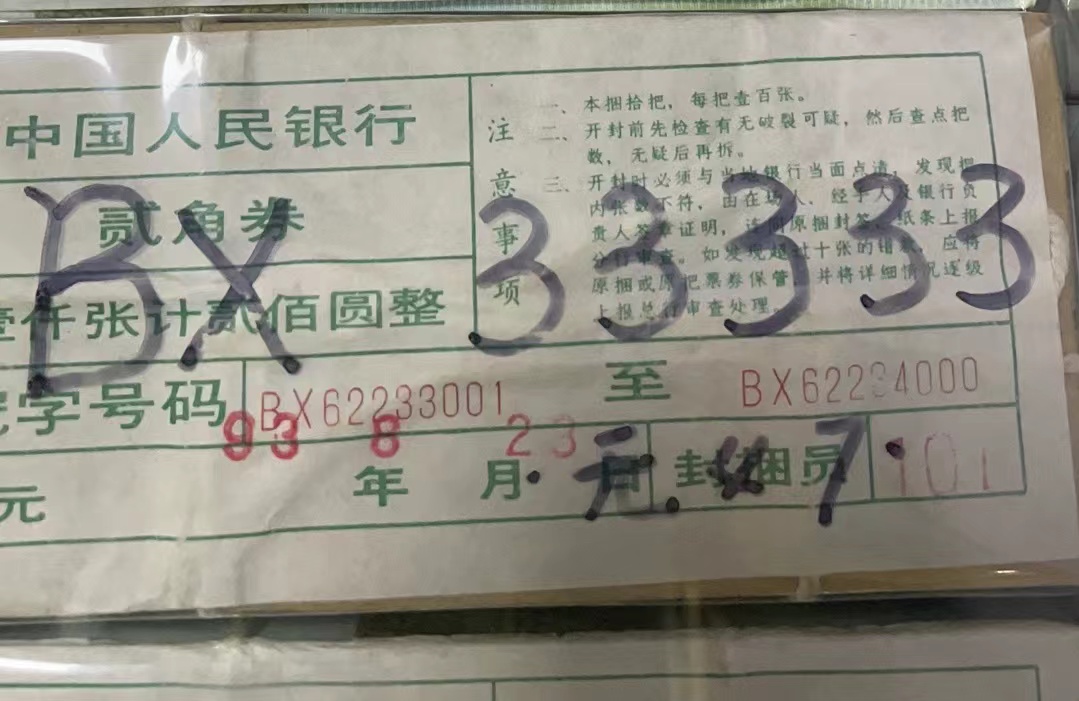 中国人民银行
贰角券
壹仟张计贰佰圆整
字号码 BX62233001 至 BX62234000
元 93 年 8 月 23 日 封捆员 101
注意事项
一、本捆拾把，每把壹百张。
二、开封前先检查有无破裂可疑，然后查点把
数，无疑后再拆。
三、开封时必须与当地银行当面点清，发现把
内张数不符，由在场人、经手人及银行负
责人签章证明，连同原捆封签、纸条上报
分行审查。如发现超过十张的错款，应将
原捆或原把票券保管，并将详细情况逐级
上报总行审查处理。
BX 33333
元 7